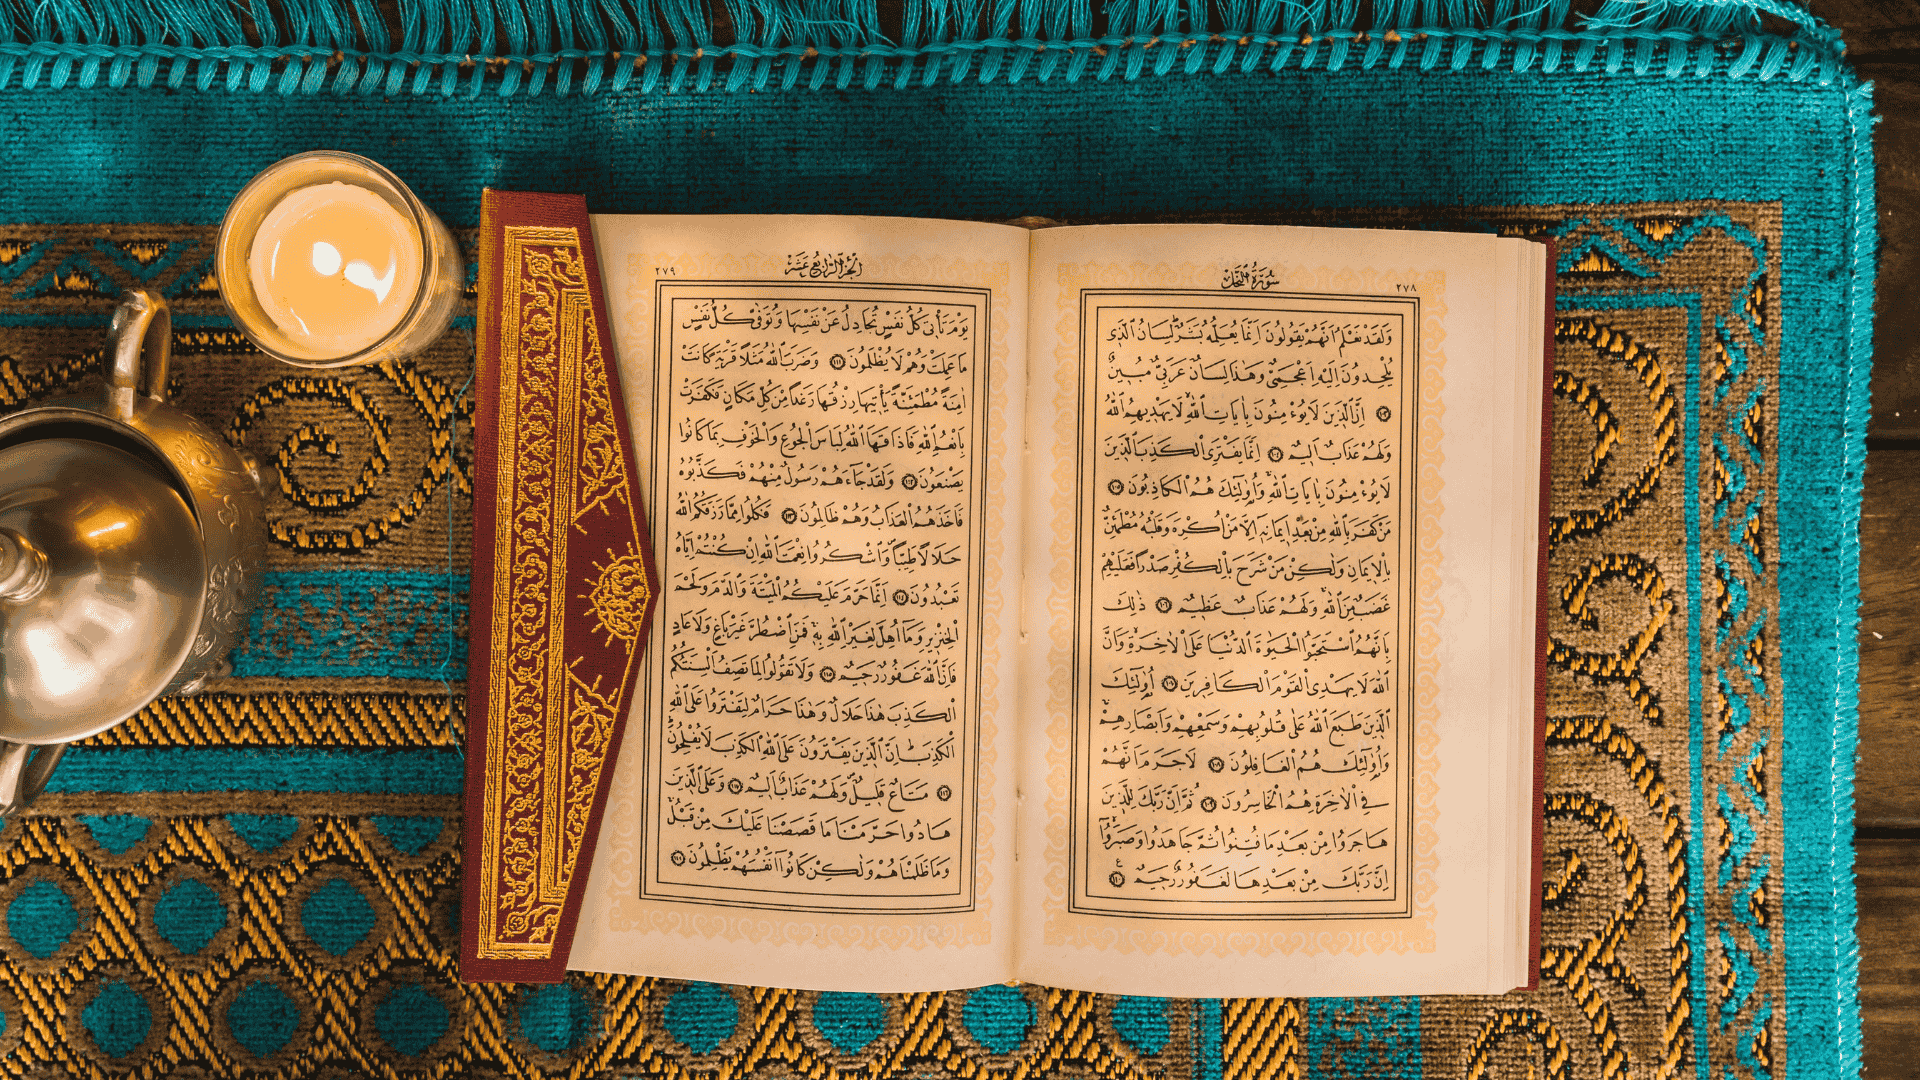 سُورَةُ النَّحْلِ ٢٧٨
وَلَقَدْ نَعْلَمُ اَنَّهُمْ يَقُولُونَ اِنَّمَا يُعَلِّمُهُ بَشَرٌ لِسَانُ الَّذٖى
يُلْحِدُونَ اِلَيْهِ اَعْجَمِىٌّ وَهٰذَا لِسَانٌ عَرَبِىٌّ مُبٖينٌ
﴿١٠٣﴾ اِنَّ الَّذٖينَ لَا يُؤْمِنُونَ بِاٰيَاتِ اللّٰهِ لَا يَهْدٖيهِمُ اللّٰهُ
وَلَهُمْ عَذَابٌ اَلٖيمٌ ﴿١٠٤﴾ اِنَّمَا يَفْتَرِى الْكَذِبَ الَّذٖينَ
لَا يُؤْمِنُونَ بِاٰيَاتِ اللّٰهِ وَاُولٰٓئِكَ هُمُ الْكَاذِبُونَ ﴿١٠٥﴾
مَنْ كَفَرَ بِاللّٰهِ مِنْ بَعْدِ اٖيمَانِهٖ اِلَّا مَنْ اُكْرِهَ وَقَلْبُهُ مُطْمَئِنٌّ
بِالْاٖيمَانِ وَلٰكِنْ مَنْ شَرَحَ بِالْكُفْرِ صَدْرًا فَعَلَيْهِمْ
غَضَبٌ مِنَ اللّٰهِ وَلَهُمْ عَذَابٌ عَظٖيمٌ ﴿١٠٦﴾ ذٰلِكَ
بِاَنَّهُمُ اسْتَحَبُّوا الْحَيٰوةَ الدُّنْيَا عَلَى الْاٰخِرَةِ وَاَنَّ
اللّٰهَ لَا يَهْدِى الْقَوْمَ الْكَافِرٖينَ ﴿١٠٧﴾ اُولٰٓئِكَ
الَّذٖينَ طَبَعَ اللّٰهُ عَلٰى قُلُوبِهِمْ وَسَمْعِهِمْ وَاَبْصَارِهِمْ
وَاُولٰٓئِكَ هُمُ الْغَافِلُونَ ﴿١٠٨﴾ لَا جَرَمَ اَنَّهُمْ
فِى الْاٰخِرَةِ هُمُ الْخَاسِرُونَ ﴿١٠٩﴾ ثُمَّ اِنَّ رَبَّكَ لِلَّذٖينَ
هَاجَرُوا مِنْ بَعْدِ مَا فُتِنُوا ثُمَّ جَاهَدُوا وَصَبَرُوا
اِنَّ رَبَّكَ مِنْ بَعْدِهَا لَغَفُورٌ رَحٖيمٌ ﴿١١٠﴾
اَلْجُزْءُ الرَّابِعُ عَشَرَ ٢٧٩
يَوْمَ تَاْتٖى كُلُّ نَفْسٍ تُجَادِلُ عَنْ نَفْسِهَا وَتُوَفّٰى كُلُّ نَفْسٍ
مَا عَمِلَتْ وَهُمْ لَا يُظْلَمُونَ ﴿١١١﴾ وَضَرَبَ اللّٰهُ مَثَلًا قَرْيَةً كَانَتْ
اٰمِنَةً مُطْمَئِنَّةً يَاْتٖيهَا رِزْقُهَا رَغَدًا مِنْ كُلِّ مَكَانٍ فَكَفَرَتْ
بِاَنْعُمِ اللّٰهِ فَاَذَاقَهَا اللّٰهُ لِبَاسَ الْجُوعِ وَالْخَوْفِ بِمَا كَانُوا
يَصْنَعُونَ ﴿١١٢﴾ وَلَقَدْ جَٓاءَهُمْ رَسُولٌ مِنْهُمْ فَكَذَّبُوهُ
فَاَخَذَهُمُ الْعَذَابُ وَهُمْ ظَالِمُونَ ﴿١١٣﴾ فَكُلُوا مِمَّا رَزَقَكُمُ اللّٰهُ
حَلَالًا طَيِّبًا وَاشْكُرُوا نِعْمَتَ اللّٰهِ اِنْ كُنْتُمْ اِيَّاهُ
تَعْبُدُونَ ﴿١١٤﴾ اِنَّمَا حَرَّمَ عَلَيْكُمُ الْمَيْتَةَ وَالدَّمَ وَلَحْمَ
الْخِنْزٖيرِ وَمَٓا اُهِلَّ لِغَيْرِ اللّٰهِ بِهٖ فَمَنِ اضْطُرَّ غَيْرَ بَاغٍ وَلَا عَادٍ
فَاِنَّ اللّٰهَ غَفُورٌ رَحٖيمٌ ﴿١١٥﴾ وَلَا تَقُولُوا لِمَا تَصِفُ اَلْسِنَتُكُمُ
الْكَذِبَ هٰذَا حَلَالٌ وَهٰذَا حَرَامٌ لِتَفْتَرُوا عَلَى اللّٰهِ
الْكَذِبَ اِنَّ الَّذٖينَ يَفْتَرُونَ عَلَى اللّٰهِ الْكَذِبَ لَا يُفْلِحُونَ
﴿١١٦﴾ مَتَاعٌ قَلٖيلٌ وَلَهُمْ عَذَابٌ اَلٖيمٌ ﴿١١٧﴾ وَعَلَى الَّذٖينَ
هَادُوا حَرَّمْنَا مَا قَصَصْنَا عَلَيْكَ مِنْ قَبْلُ
وَمَا ظَلَمْنَاهُمْ وَلٰكِنْ كَانُٓوا اَنْفُسَهُمْ يَظْلِمُونَ ﴿١١٨﴾